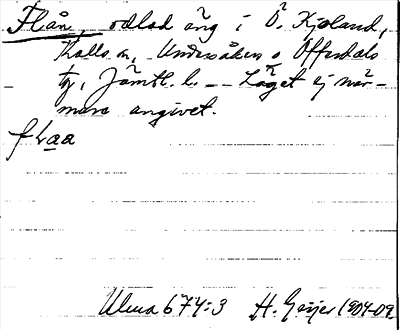 Flån, odlad äng i Ö. Kjoland,
Kalls sn, Undersåkers o Offerdals
tg, Jämtl. l. — Läget ej när-
mare angivet.
flaa
Ulma 674:3 H. Geijer 1904-09.